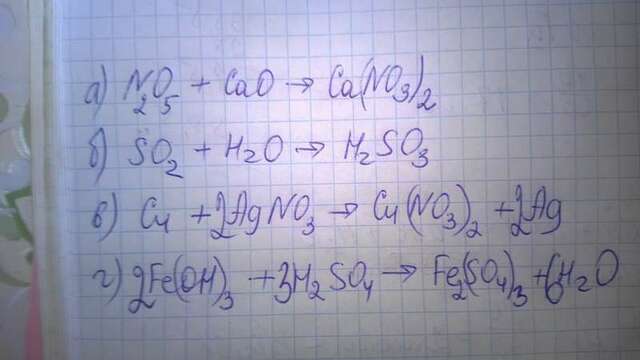 а) N₂O₅ + CaO → Ca(NO₃)₂
б) SO₂ + H₂O → H₂SO₃
в) Cu + 2AgNO₃ → Cu(NO₃)₂ + 2Ag
г) 2Fe(OH)₃ + 3H₂SO₄ → Fe₂(SO₄)₃ + 6H₂O